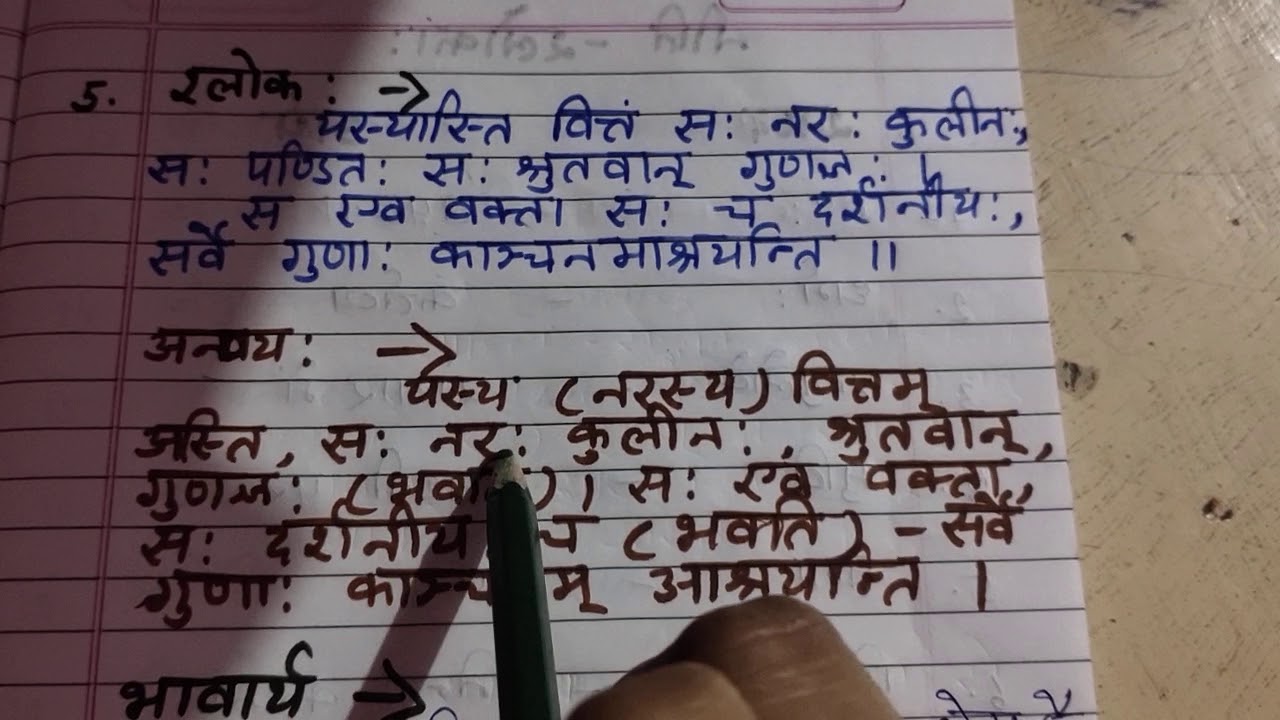 5. श्लोक: →
यस्यास्ति वित्तं स: नर: कुलीन:,
स: पण्डित: स: श्रुतवान् गुणज्ञ: ।
स एव वक्ता स: च दर्शनीय:,
सर्वे गुणा: काञ्चनमाश्रयन्ति ॥
अन्वय: →
यस्य (नरस्य) वित्तम्
अस्ति, स: नर: कुलीन:, श्रुतवान्,
गुणज्ञ: । स: एवं वक्ता,
स: दर्शनीय च (भवति) – सर्वे
गुणा: आश्रयन्ति ।
भावार्थ →